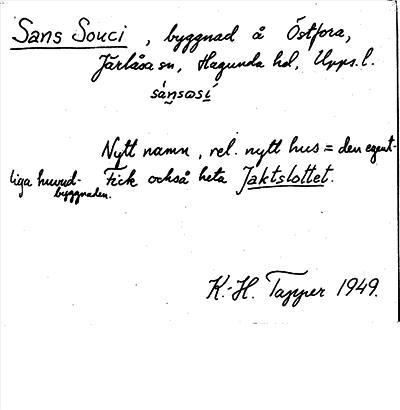 Sans Souci, byggnad å Östfora,
Järlåsa sn, Hagunda hd, Upps. l.
sáṇsɷsí
Nytt namn, rel. nytt hus = den egent-
liga huvud-
byggnaden. Fick också heta Jaktslottet.
K.-H. Tapper 1949.